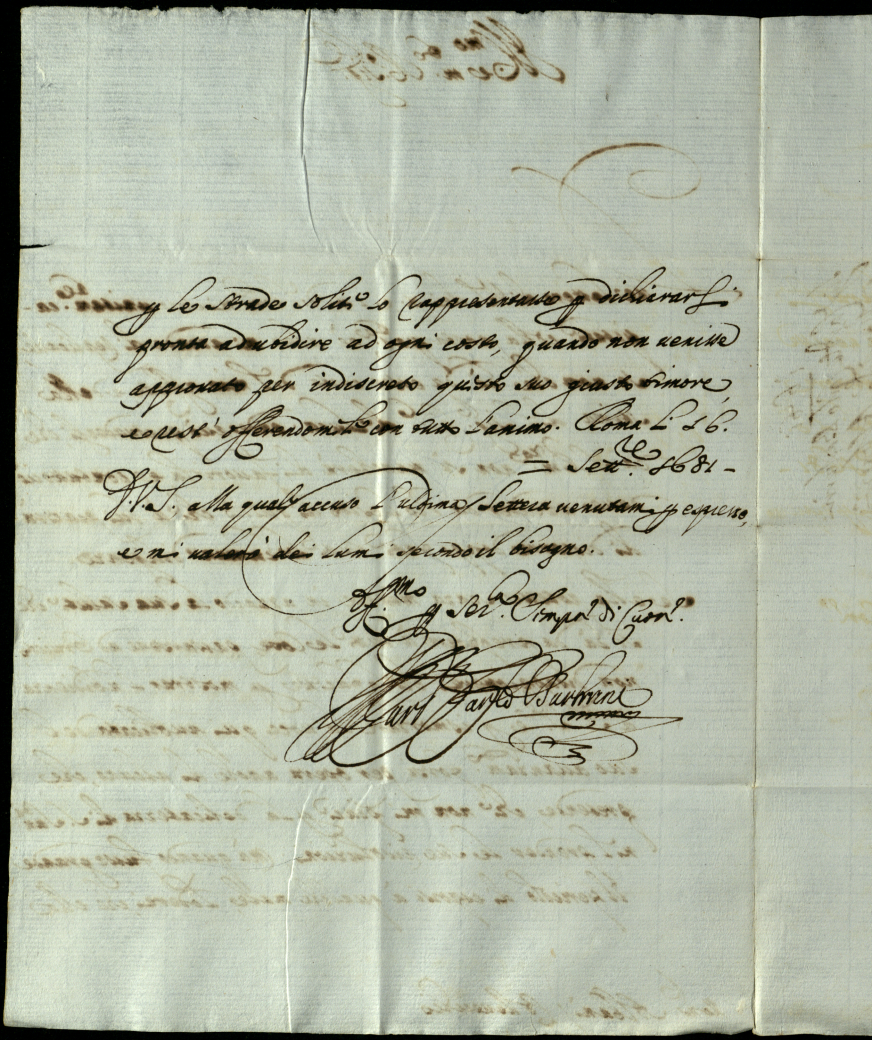 p le strade solite lo rappresentasse p dichiararsi
pronta ad ubidire ad ogni costo, quando non venisse
approvato per indiscreto questo suo giusto timore,
e rest' offerendomele con tutto l'animo. Roma li 16.
= Sett.re 1681 -
D.V.S. alla quale accuso l'ultima lettera venutami p espresso,
e mi valerò dei lumi secondo il bisogno.
Aff.mo p Ser.la Semp.e di Cuore.
Il Card. Carlo Barberini